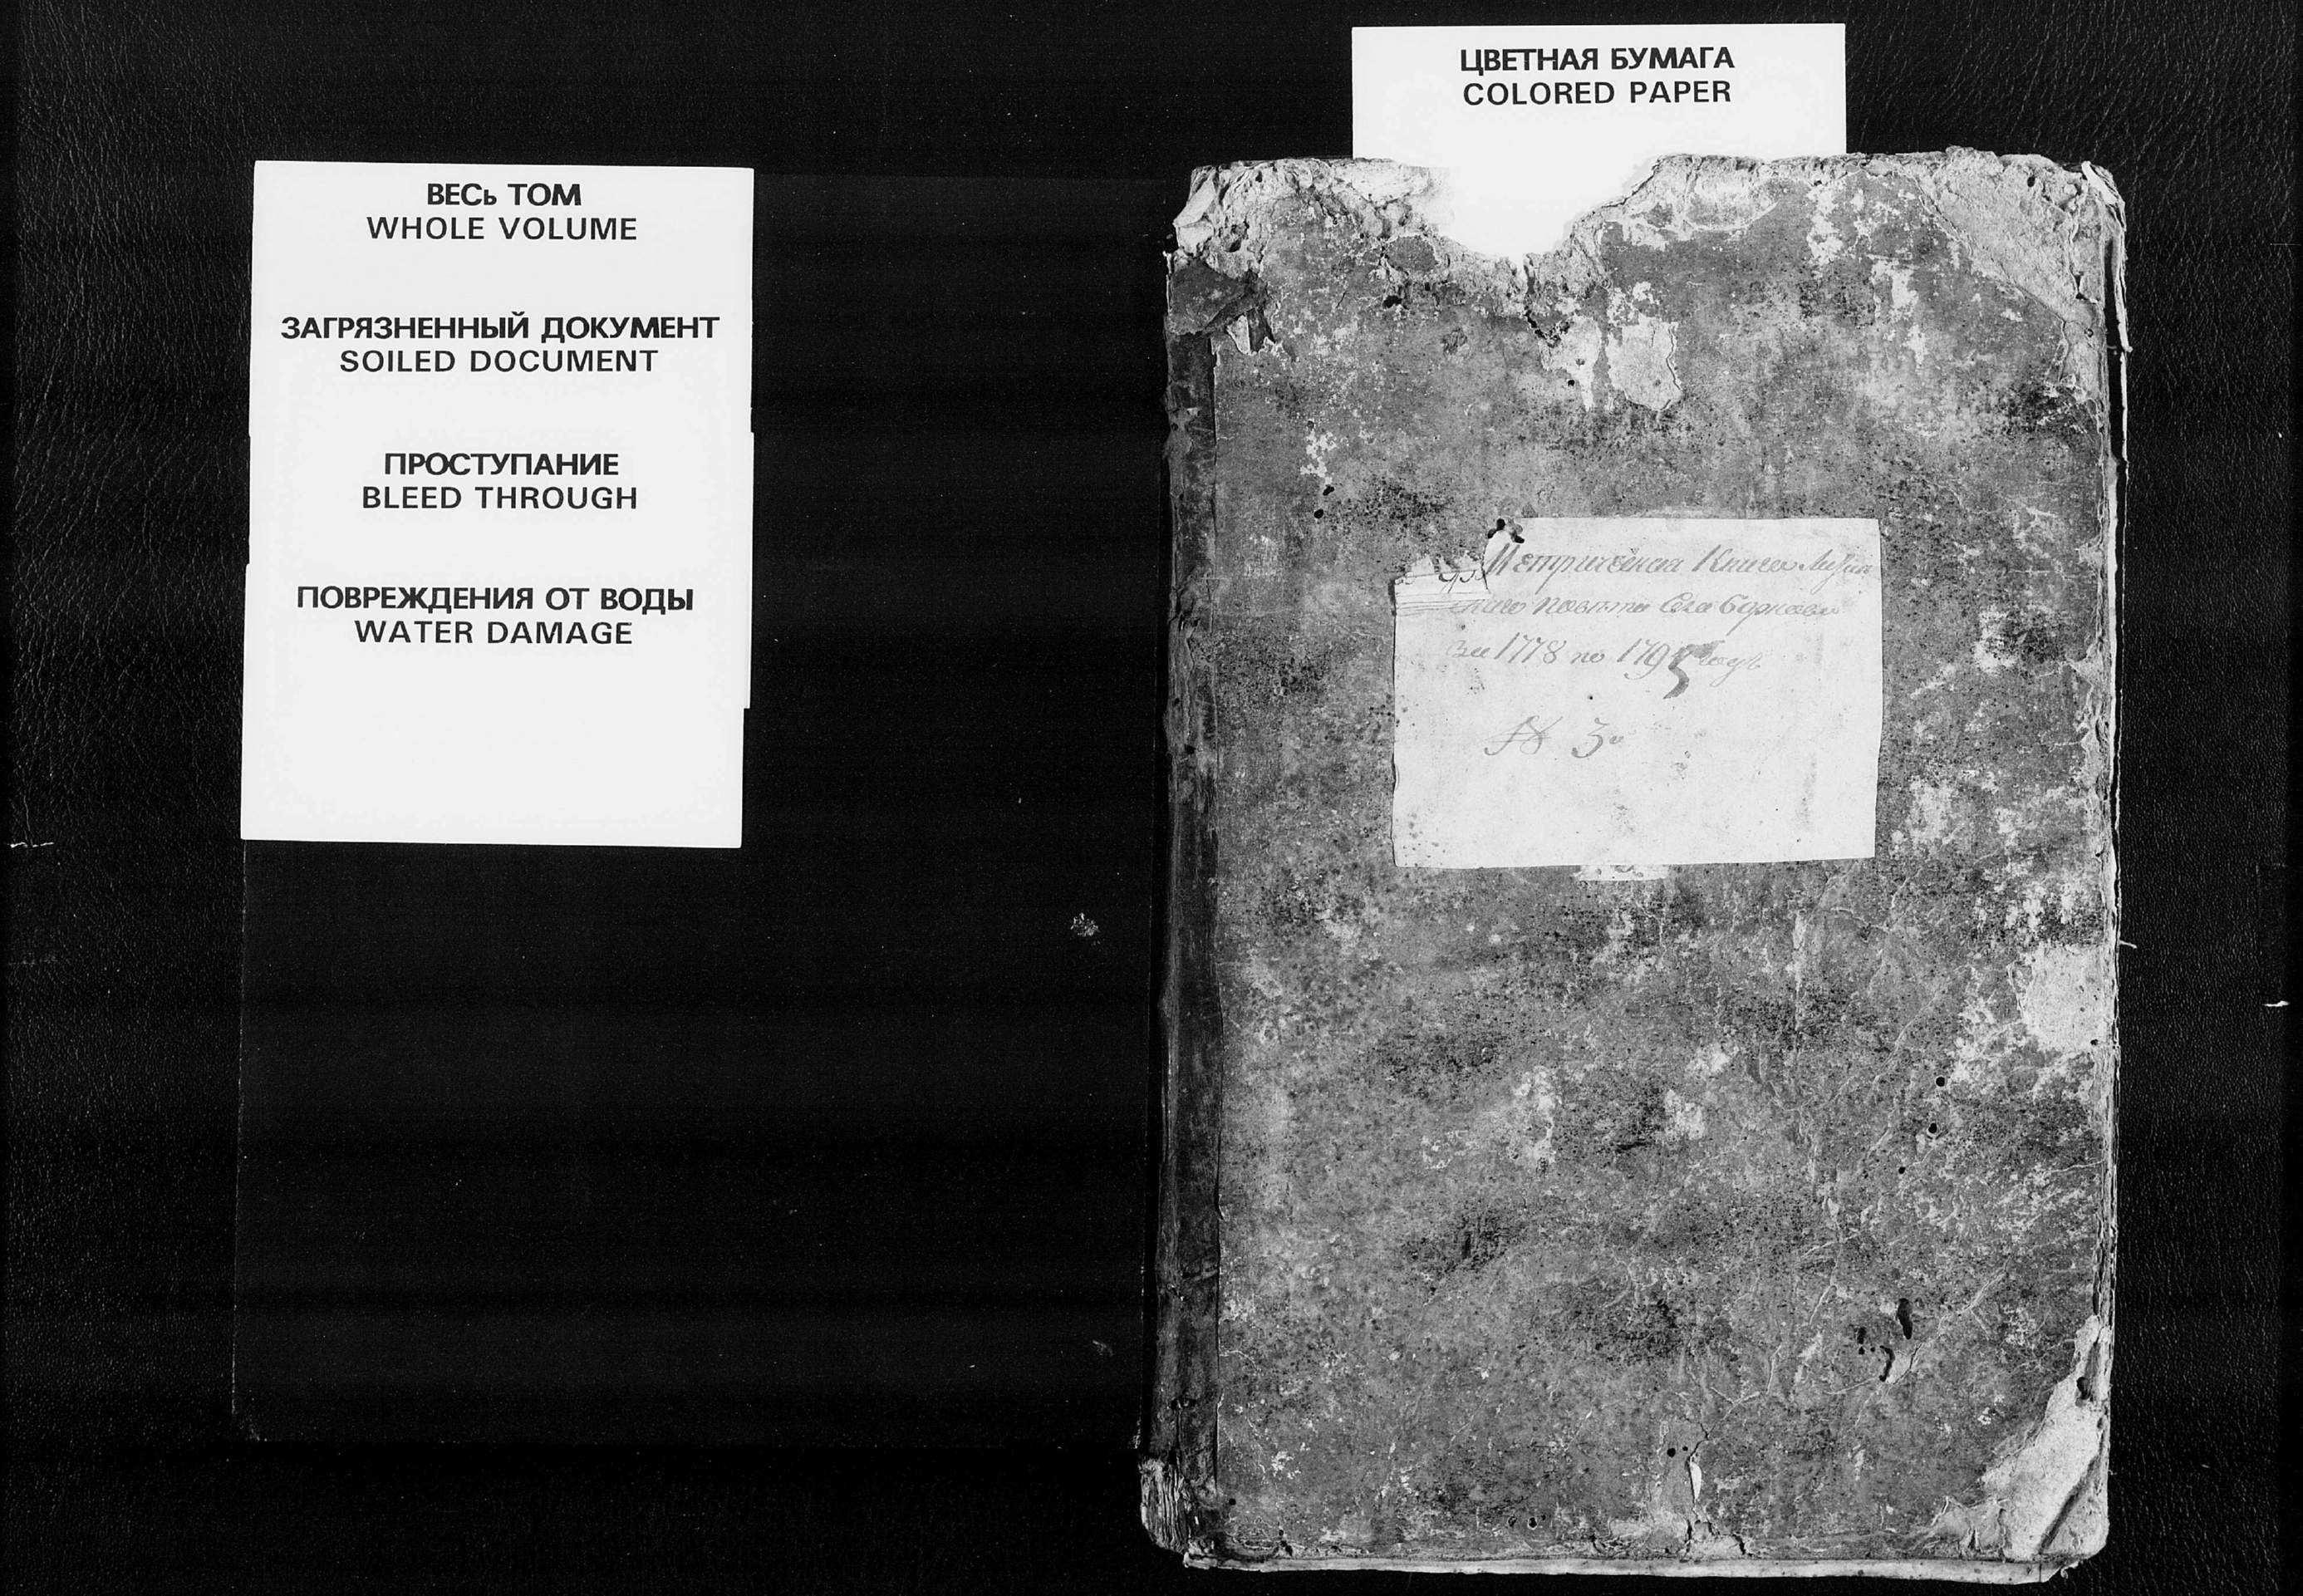 ЦВЕТНАЯ БУМАГА
COLORED PAPER
ВЕСЬ ТОМ
WHOLE VOLUME
ЗАГРЯЗНЕННЫЙ ДОКУМЕНТ
SOILED DOCUMENT
ПРОСТУПАНИЕ
BLEED THROUGH
ПОВРЕЖДЕНИЯ ОТ ВОДЫ
WATER DAMAGE
Метрическая Книга
повѣта Села
1778 по 1795 годъ
№ 3